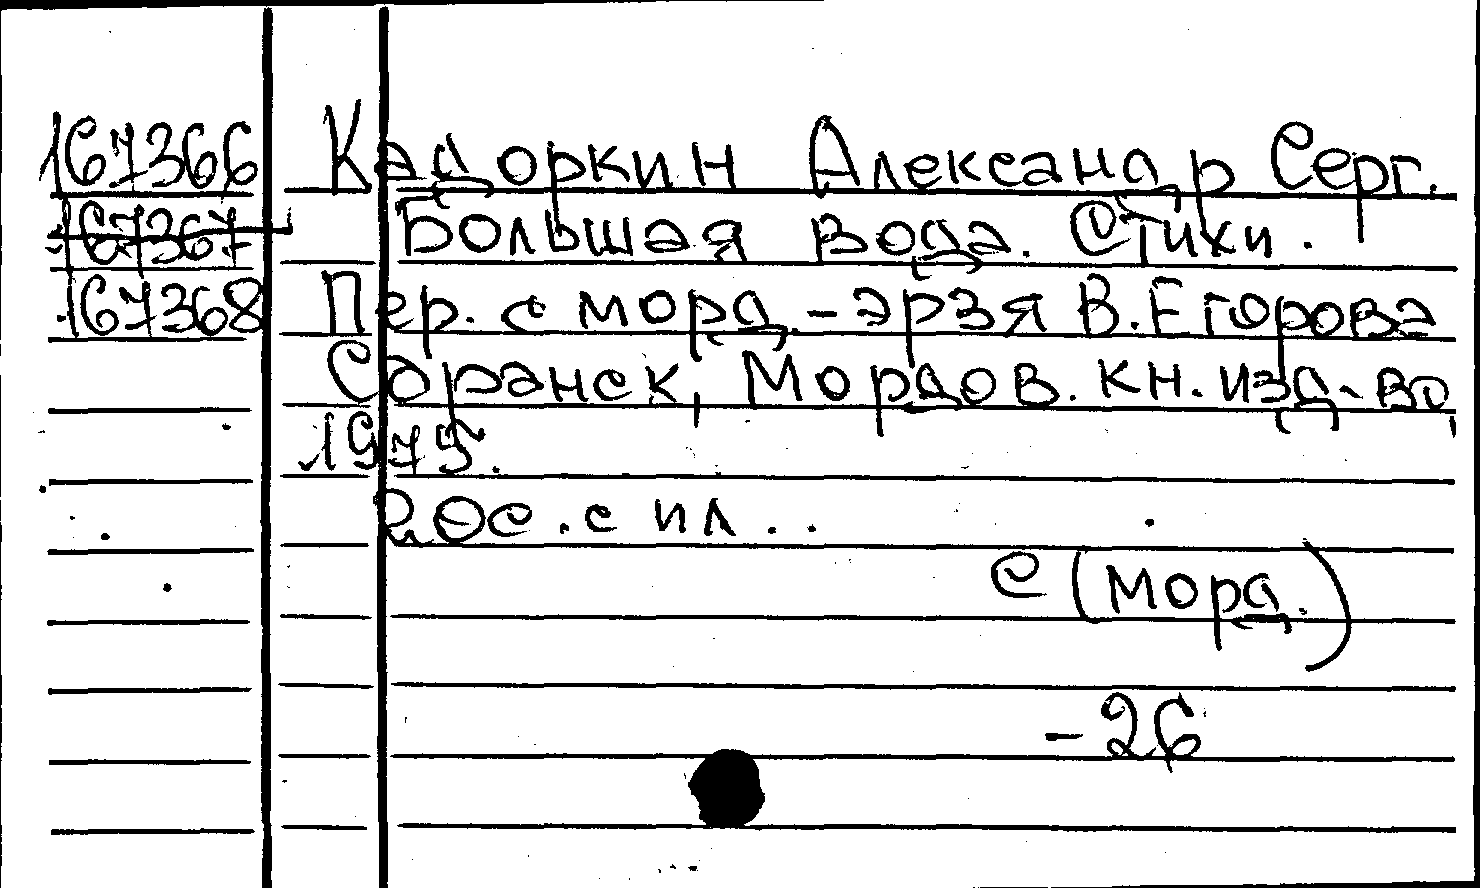 167366 Кадоркин Александр Серг.
167367 Большая вода. Стихи.
167368 Пер. с морд.-эрзя В. Егорова
Саранск, Мордов. кн. изд-во,
1975.
20с. с ил..
С (морд.)
-26